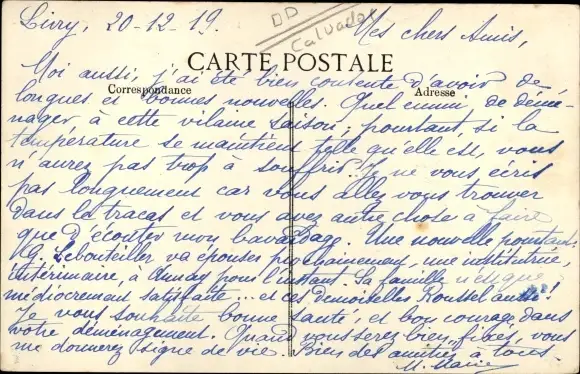 Livry, 20-12-19.
DD
Calvados
Mes chers Amis,
CARTE POSTALE
Correspondance
Adresse
Moi aussi, j'ai été bien contente d'avoir de
longues et bonnes nouvelles. Quel ennui de démé-
nager à cette vilaine saison; pourtant, si la
température se maintient telle qu'elle est, vous
n'aurez pas trop à souffrir. Je ne vous écris
pas longuement car vous allez vous trouver
dans le tracas et vous avez autre chose à faire
que d'écouter mon bavardage. Une nouvelle pourtant:
G. Lebouteiller va épouser prochainement, une institutrice,
intérimaire, à Aunay pour l'instant. Sa famille n'est que
médiocrement satisfaite... et ces demoiselles Roussel aussi!
Je vous souhaite bonne santé, et bon courage dans
votre déménagement. Quand vous serez bien "fixés, vous
me donnerez signe de vie. Bien des amitiés à tous.
M. Marie